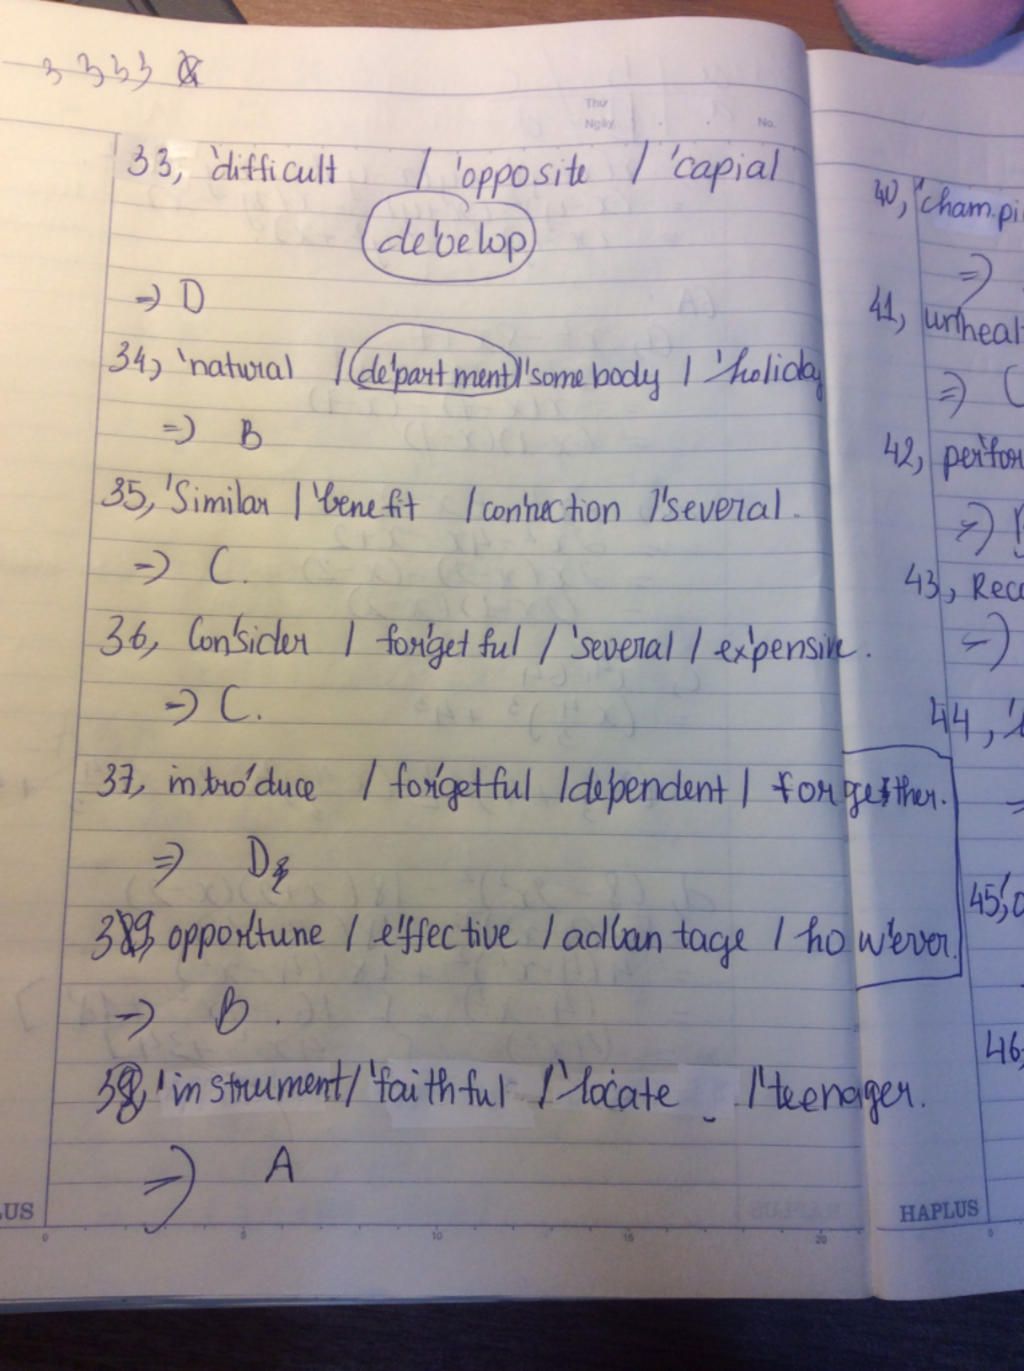 3 3 3 3
Thứ
Ngày
No.
33, 'difficult / 'opposite / 'capial
de'velop
=> D
34, 'natural / de'partment / 'somebody / 'holiday
=> B
35, 'Similar / 'benefit / con'nection / 'several.
=> C.
36, Con'sider / for'getful / 'several / ex'pensive.
=> C.
37, intro'duce / for'getful / de'pendent /
=> D
opportune / e'ffective / advantage / how'ever.
=> B.
'instrument / 'faithful / 'locate / 'teenager.
=> A
HAPLUS
0 5 10 15 20
40, 'champi
=>
41, unheal
=> C
42, perfor
=>
43, Reco
=>
44,
=>
45,
46,